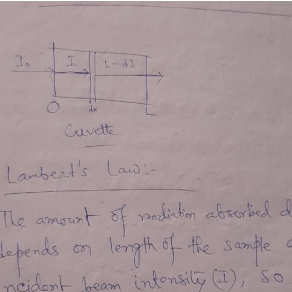 I₀ I 1-dI
O dx L
Cuvette
Lambert's Law:-
The amount of radiation absorbed d
depends on length of the sample
incident beam intensity (I), so